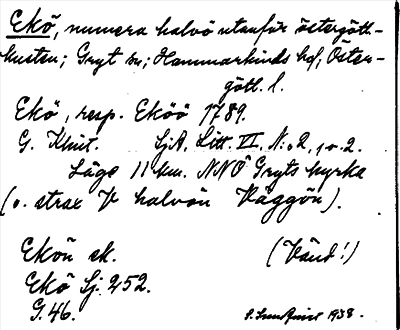 Ekö, numera halvö utanför östergött.-
kusten; Gryt sn; Hammarkinds hd, Öster-
götl. l.
Ekö, resp. Eköö 1789.
G. Klint. SjA, Litt. VI, N:o 2, 1 o. 2.
Läge 11 km. NNO Gryts kyrka
(o. strax V halvön Väggön).
Ekön ek. (Vänd!)
Ekö Sj. 252.
G. 46. 1938.